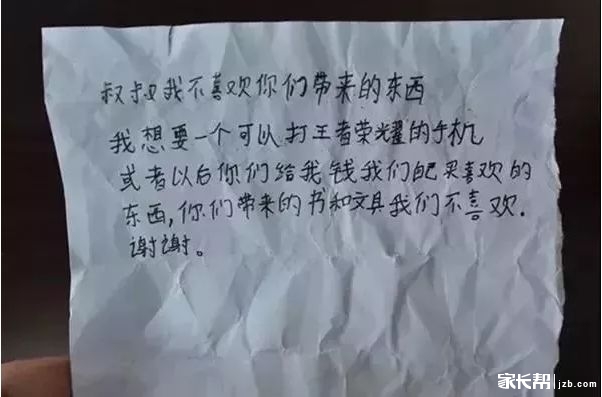 叔叔我不喜欢你们带来的东西
我想要一个可以打王者荣耀的手机
或者以后你们给我钱我们自己买喜欢的
东西,你们带来的书和文具我们不喜欢.
谢谢。
家长帮 jzb.com